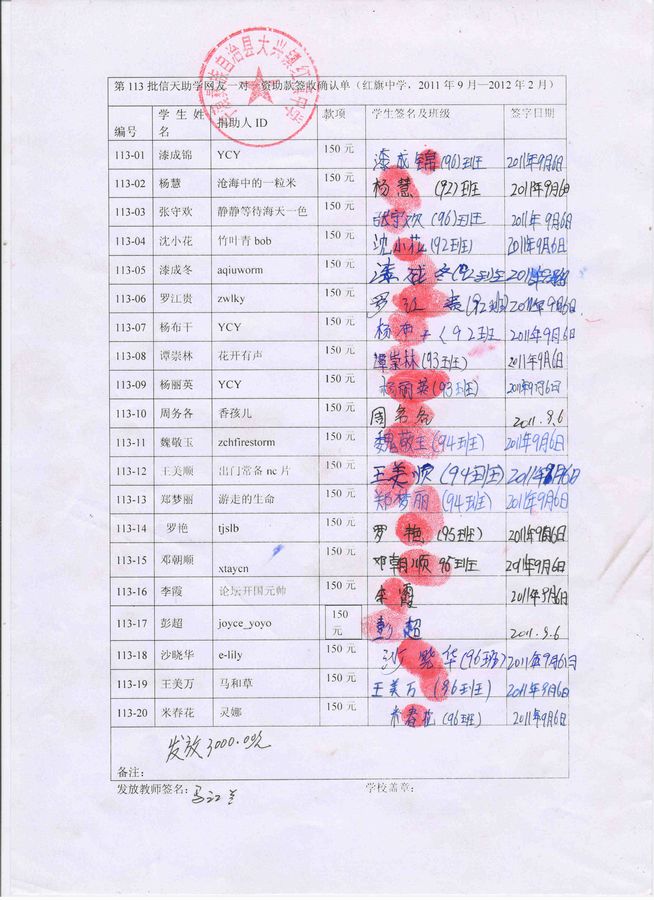 第 113 批信天助学网友一对一资助款签收确认单（红旗中学，2011 年 9 月—2012 年 2 月）
编号 学生姓名 捐助人 ID 款项 学生签名及班级 签字日期
113-01 漆成锦 YCY 150 元 漆成锦(96)班 2011年9月6日
113-02 杨慧 沧海中的一粒米 150 元 杨慧 (92)班 2011年9月6日
113-03 张守欢 静静等待海天一色 150 元 张守欢(96)班 2011年9月6日
113-04 沈小花 竹叶青 bob 150 元 沈小花(92班) 2011年9月6日
113-05 漆成冬 aqiuworm 150 元 漆成冬(92班 2011年
113-06 罗江贵 zwlky 150 元 罗江贵(92班) 2011年9月6日
113-07 杨布干 YCY 150 元 杨布干(92班 2011年9月6日
113-08 谭崇林 花开有声 150 元 谭崇林(93班) 2011年9月6日
113-09 杨丽英 YCY 150 元 杨丽英(93班) 2011年9月6日
113-10 周务各 香孩儿 150 元 周务各 2011.9.6
113-11 魏敬玉 zchfirestorm 150 元 魏敬玉(94班) 2011年9月6日
113-12 王美顺 出门常备 nc 片 150 元 王美顺(94班) 2011年9月6日
113-13 郑梦丽 游走的生命 150 元 郑梦丽(94班) 2011年9月6日
113-14 罗艳 tjslb 150 元 罗艳(95班) 2011年9月6日
113-15 邓朝顺 xtaycn 150 元 邓朝顺 95班 2011年9月6日
113-16 李霞 论坛开国元帅 150 元 李霞 2011年9月6日
113-17 彭超 joyce_yoyo 150 元 彭超 2011.9.6
113-18 沙晓华 e-lily 150 元 沙晓华(96班) 2011年9月6日
113-19 王美万 马和草 150 元 王美万(96班) 2011年9月6日
113-20 米春花 灵娜 150 元 米春花(96班) 2011年9月6日
发放3000.00元
备注：
发放教师签名： 学校盖章：